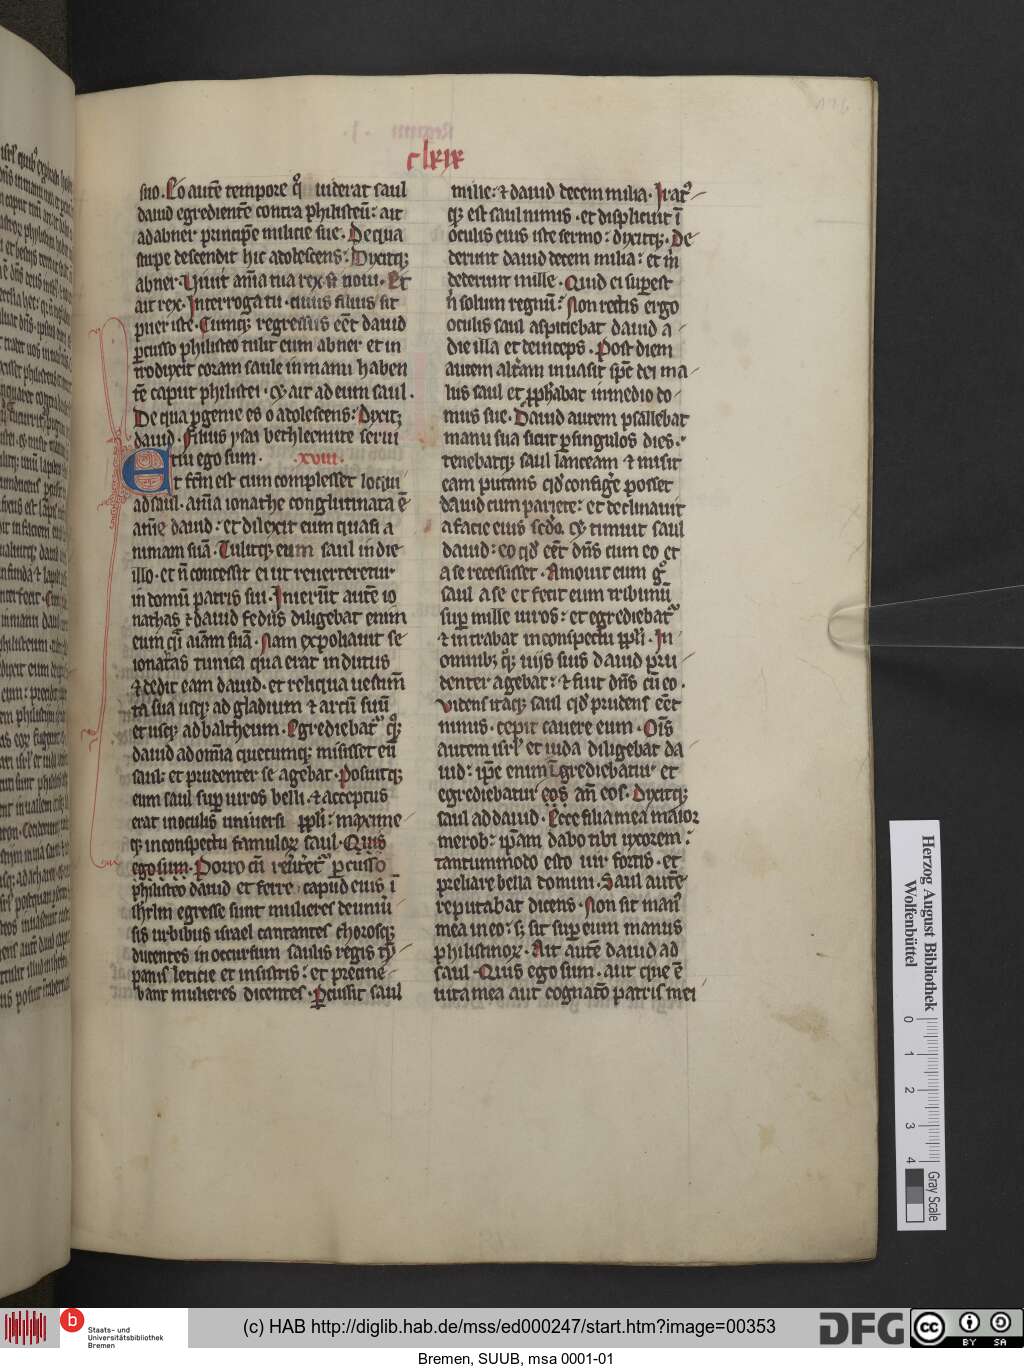 clxix
suo. Eo autē tempore qͦ uiderat saul
dauid egredientē contra philisteū: ait
ad abner principē milicie sue. De qua
stirpe descendit hic adolescens: Dixitqꝫ
abner. Viuit aīa tua rex si noui. Et
ait rex. Interroga tu. cuius filius sit
puer iste. Cumqꝫ regressus eēt dauid
ꝑcusso philisteo tulit eum abner et in
trodixit coram saule in manu haben
tē caput philistei. ⁊ ait ad eum saul.
De qua ꝓgenie es o adolescens: Dixitqꝫ
dauid. Filius ysai bethleemite serui
tui ego sum. .xviii.
Et fc̄m est cum complesset loqui
ad saul. aīa ionathe conglutinata ē
aīe dauid: et dilexit eum quasi a
nimam suā. Tulitqꝫ eum saul in die
illo. et n̄ concessit ei ut reuerteretur
in domū patris sui. Inierūt autē io
nathas ⁊ dauid fedus diligebat enim
eum qͣi aīam suā. Nam expoliauit se
ionatas tunica qua erat indutus
⁊ dedit eam dauid. et reliqua uestim̄
ta sua usqꝫ ad gladium ⁊ arcū suū
et usqꝫ ad baltheum. Egrediebatᷣ qͦqꝫ
dauid ad om̄ia quecumqꝫ misisset eū
saul: et prudenter se agebat. Posuitqꝫ
eum saul suꝑ uiros belli. ⁊ acceptus
erat in oculis uniuersi ppl̄i: maxime
qꝫ in conspectu famuloꝝ saul. Quis
ego sum. Porro cū reūtetᷣ ꝑcusso
philisteo dauid et ferret caput eius ī
ihrlm egresse sunt mulieres de uniū
sis urbibus israel cantantes chorosqꝫ
ducentes in occursum saulis regis tȳ
panis leticie et in sistris: et precine
bant mulieres dicentes. Ꝑcussit saul
mille: ⁊ dauid decem milia. Iratꝰ
qꝫ est saul nimis. et displicuit ī
oculis eius iste sermo: dixitqꝫ. De
derunt dauid decem milia: et m̄
dederunt mille. Quid ei suꝑest
n̄ solum regnū: Non rectis ergo
oculis saul aspiciebat dauid a
die illa et deinceps. Post diem
autem alt̄am inuasit sp̄c dei ma
lus saul et ꝓph̄abat in medio do
mus sue. Dauid autem psallebat
manu sua sicut ꝑ singulos dies.
tenebatqꝫ saul lanceam ⁊ misit
eam putans qd̄ confige᷑ posset
dauid cum pariete: et declinauit
a facie eius sc̄do. ⁊ timuit saul
dauid: eo qd̄ eēt dn̄s cum eo et
a se recessisset. Amouit eum gͦ
saul a se et fecit eum tribunū
suꝑ mille uiros: et egrediebatᷣ
⁊ intrabat in conspectu ppl̄i. In
omnibꝫ qͦqꝫ uijs suis dauid pru
denter agebat: ⁊ fuit dn̄s cū eo.
Videns itaqꝫ saul qd̄ prudens eēt
nimis. cepit cauere eum. Om̄s
autem isrl̄ et iuda diligebat da
uid: ip̄e enim īgrediebatur et
egrediebatur eos an̄ eos. Dixitqꝫ
saul ad dauid. Ecce filia mea maior
merob: ip̄am dabo tibi uxorem:
tantummodo esto uir fortis. et
preliare bella domini. Saul autē
reputabat dicens. Non sit manꝰ
mea in eo: sꝫ sit suꝑ eum manus
philistinoꝝ. Ait autē dauid ad
saul. Quis ego sum. aut que ē
uita mea aut cognatō patris mei
Herzog August Bibliothek
Wolfenbüttel
0 1 2 3 4
Gray Scale
b Staats- und
Universitätsbibliothek
Bremen
HAB
(c) HAB http://diglib.hab.de/mss/ed000247/start.htm?image=00353
DFG
cc BY SA
Bremen, SUUB, msa 0001-01